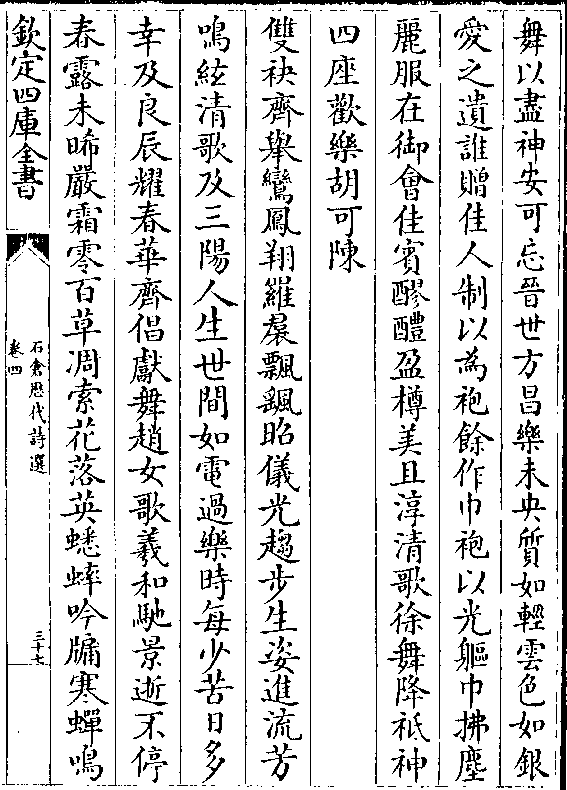 舞以盡神安可忘晉世方昌樂未央質如輕雲色如銀
愛之遺誰贈佳人制以為袍餘作巾袍以光軀巾拂塵
麗服在御會佳賓醪醴盈樽美且淳清歌徐舞降祗神
四座歡樂胡可陳
雙袂齊舉鸞鳳翔羅裠飄颻昭儀光趨步生姿進流芳
鳴絃清歌及三陽人生世間如電過樂時每少苦日多
幸及良辰耀春華齊倡獻舞趙女歌羲和馳景逝不停
春露未晞嚴霜零百草凋索花落英蟋蟀吟牖寒蟬鳴
欽定四庫全書
石倉歷代詩選
卷四
三十七